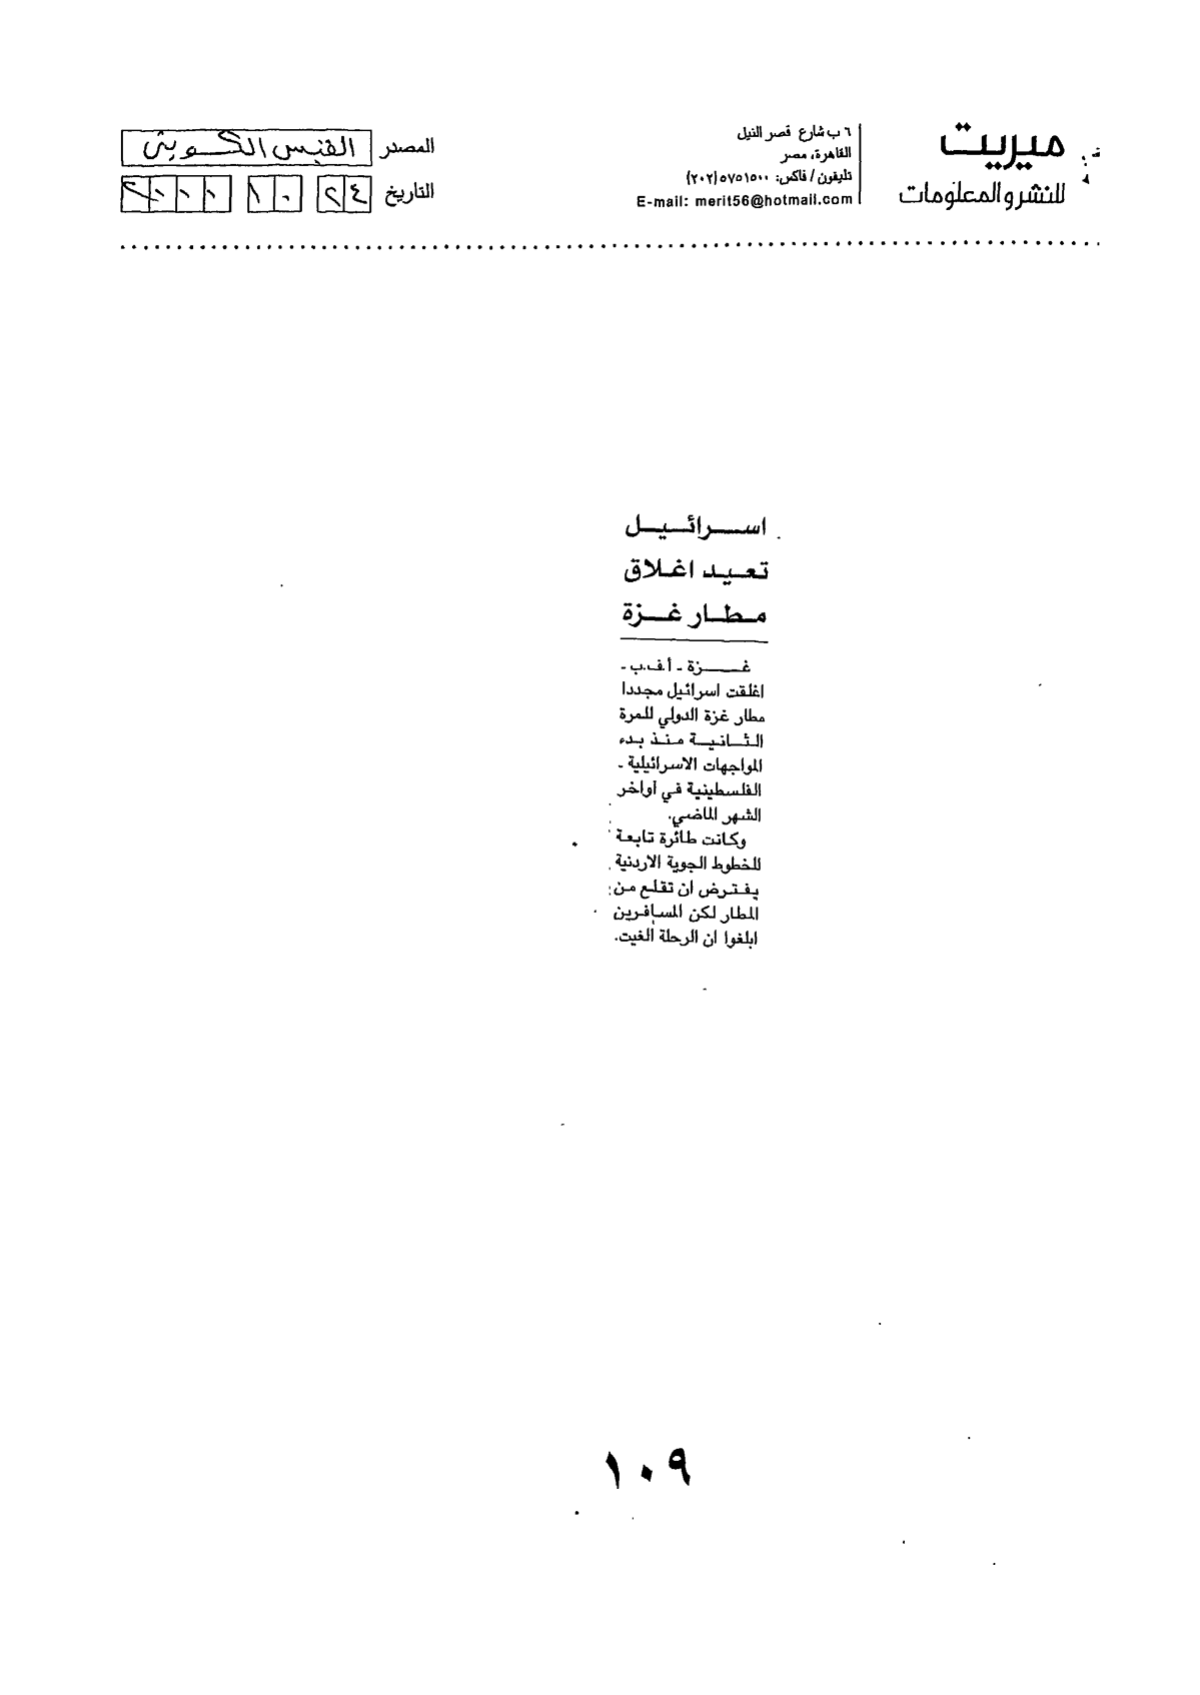 ميريت
للنشر والمعلومات
٦ ب شارع قصر النيل
القاهرة، مصر
تليفون / فاكس: ٥٧٥١٥٠٠ (٢٠٢)
E-mail: merit56@hotmail.com
المصدر القبس الكويتى
التاريخ ٢٤ ١٠ ٢٠٠٠
اسرائيل
تعيد اغلاق
مطار غزة
غزة - أ.ف.ب -
اغلقت اسرائيل مجددا
مطار غزة الدولي للمرة
الثانية منذ بدء
المواجهات الاسرائيلية -
الفلسطينية في أواخر
الشهر الماضي.
وكانت طائرة تابعة
للخطوط الجوية الاردنية
يفترض ان تقلع من
المطار لكن المسافرين
ابلغوا ان الرحلة الغيت.
١٠٩